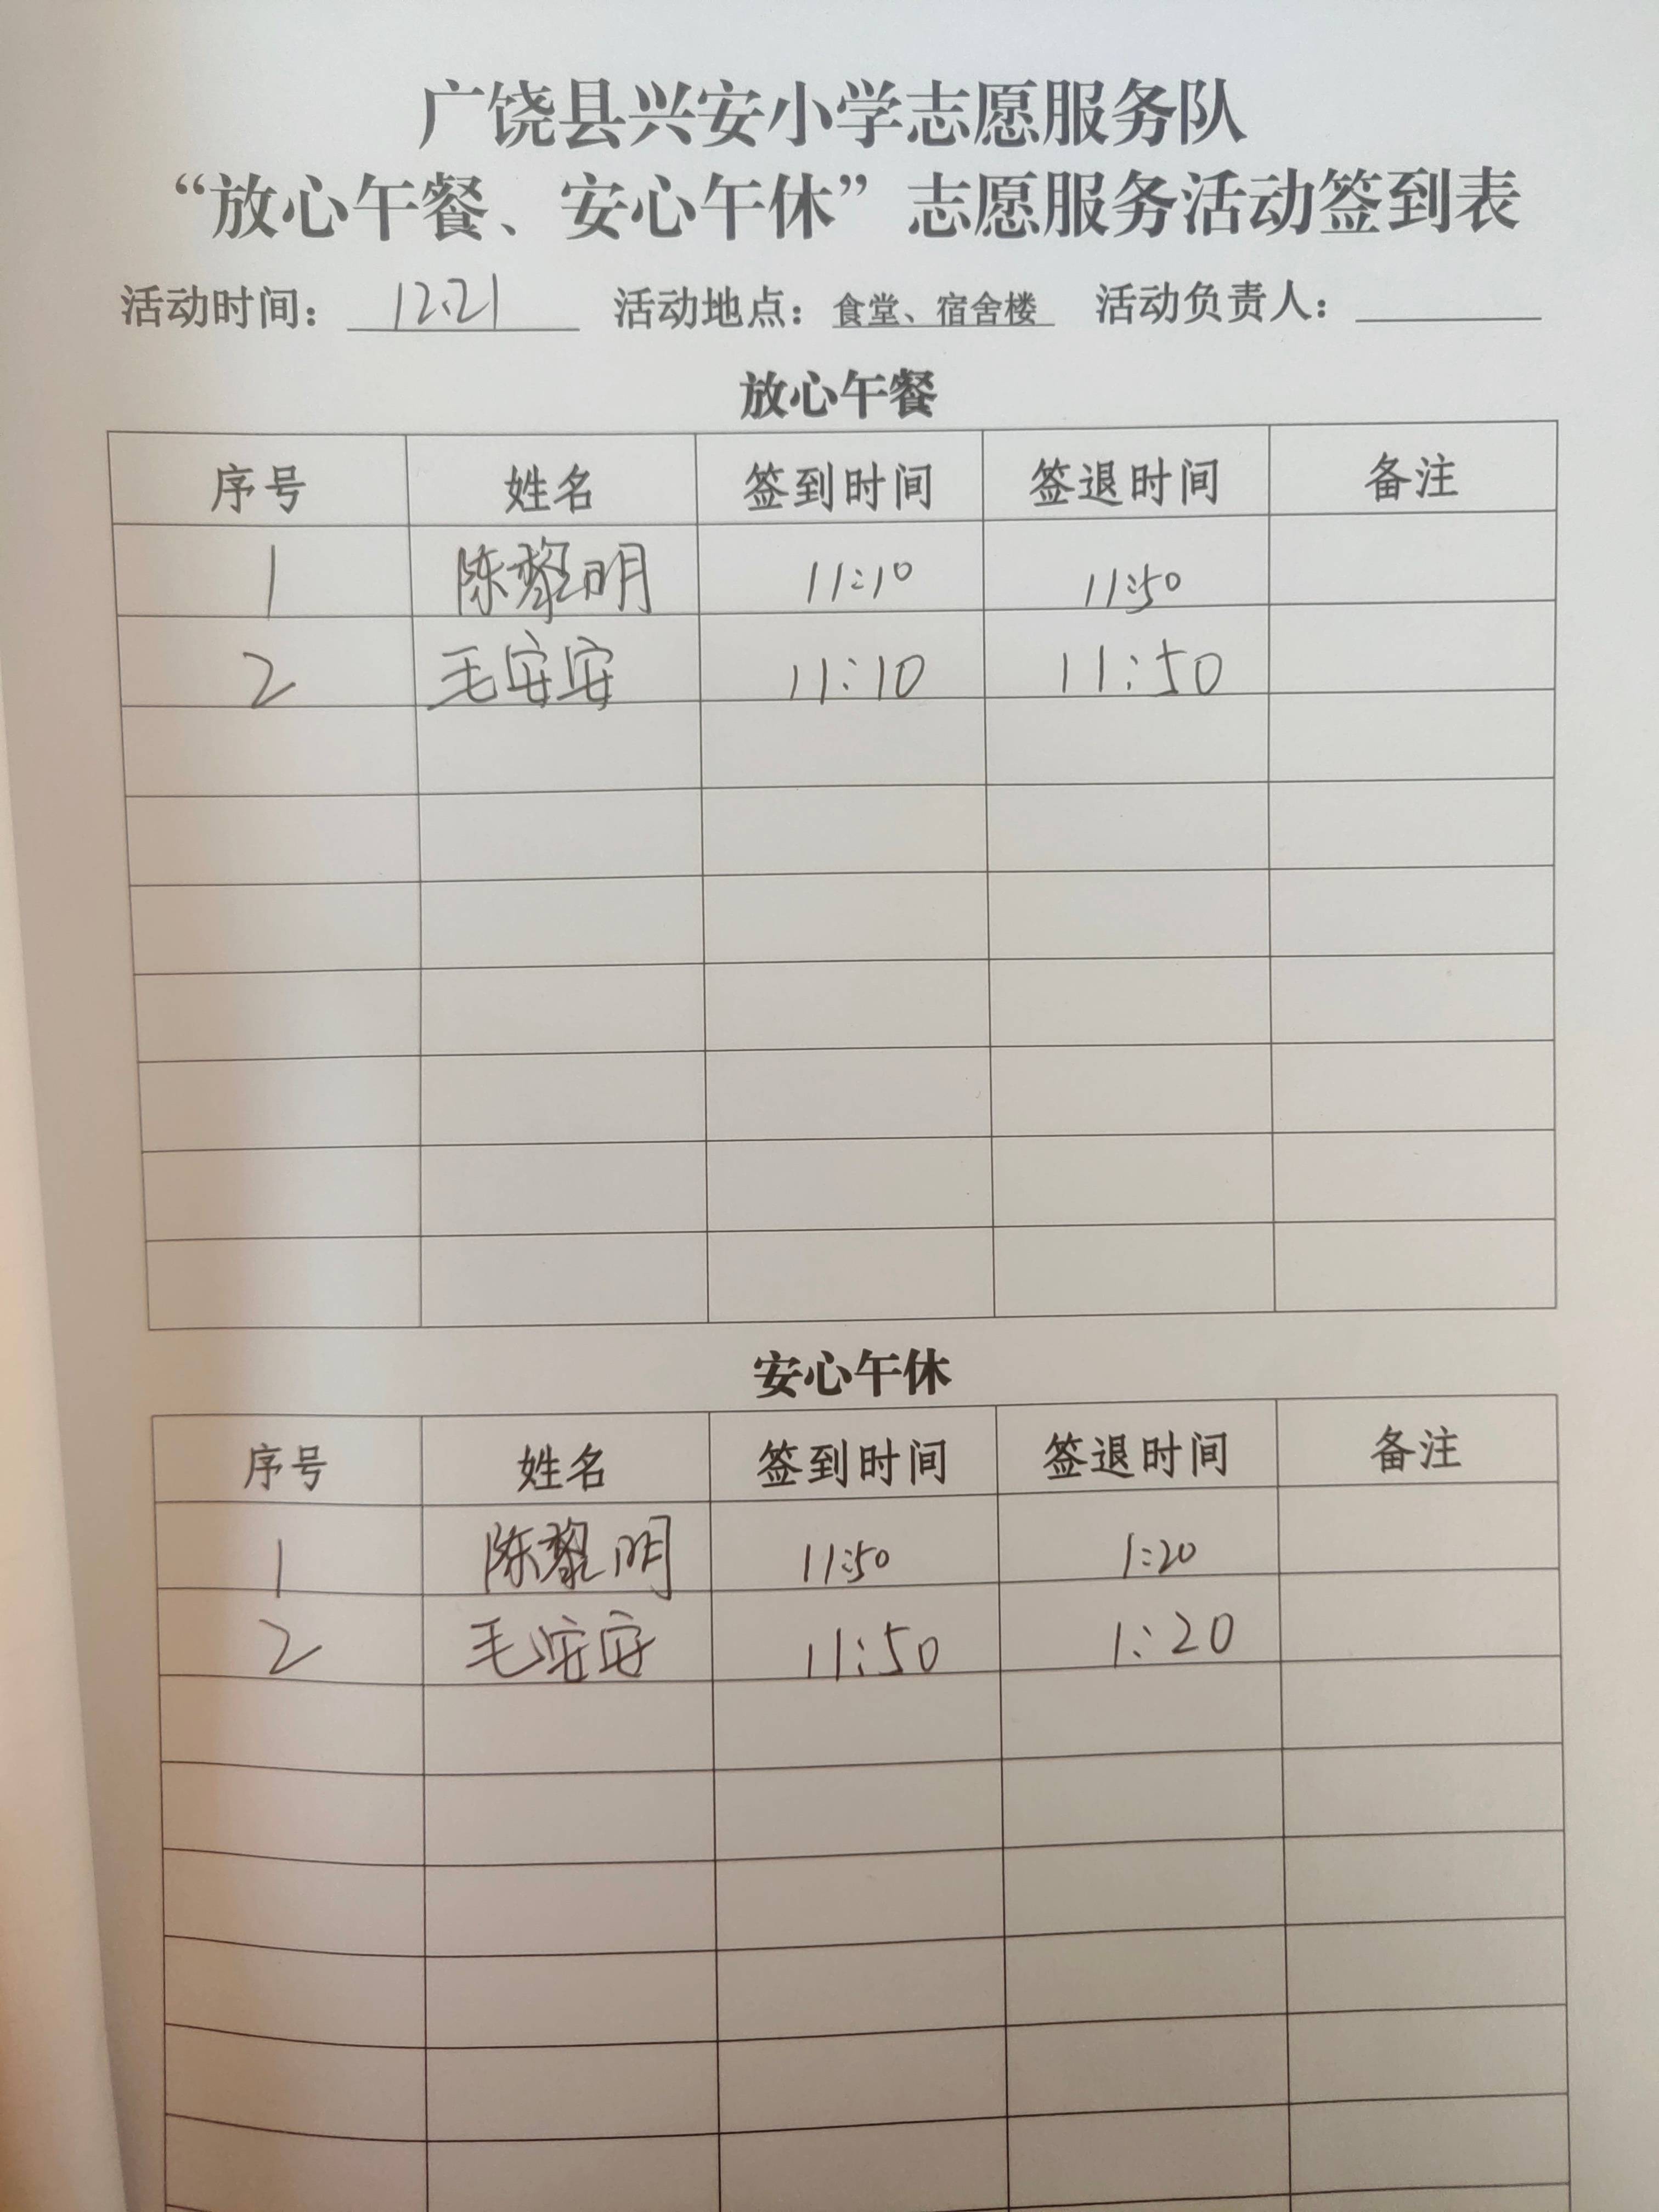 广饶县兴安小学志愿服务队
“放心午餐、安心午休”志愿服务活动签到表
活动时间：12.21 活动地点：食堂、宿舍楼 活动负责人：
放心午餐
序号 姓名 签到时间 签退时间 备注
1 陈黎明 11:10 11:50
2 毛安安 11:10 11:50
安心午休
序号 姓名 签到时间 签退时间 备注
1 陈黎明 11:50 1:20
2 毛安安 11:50 1:20